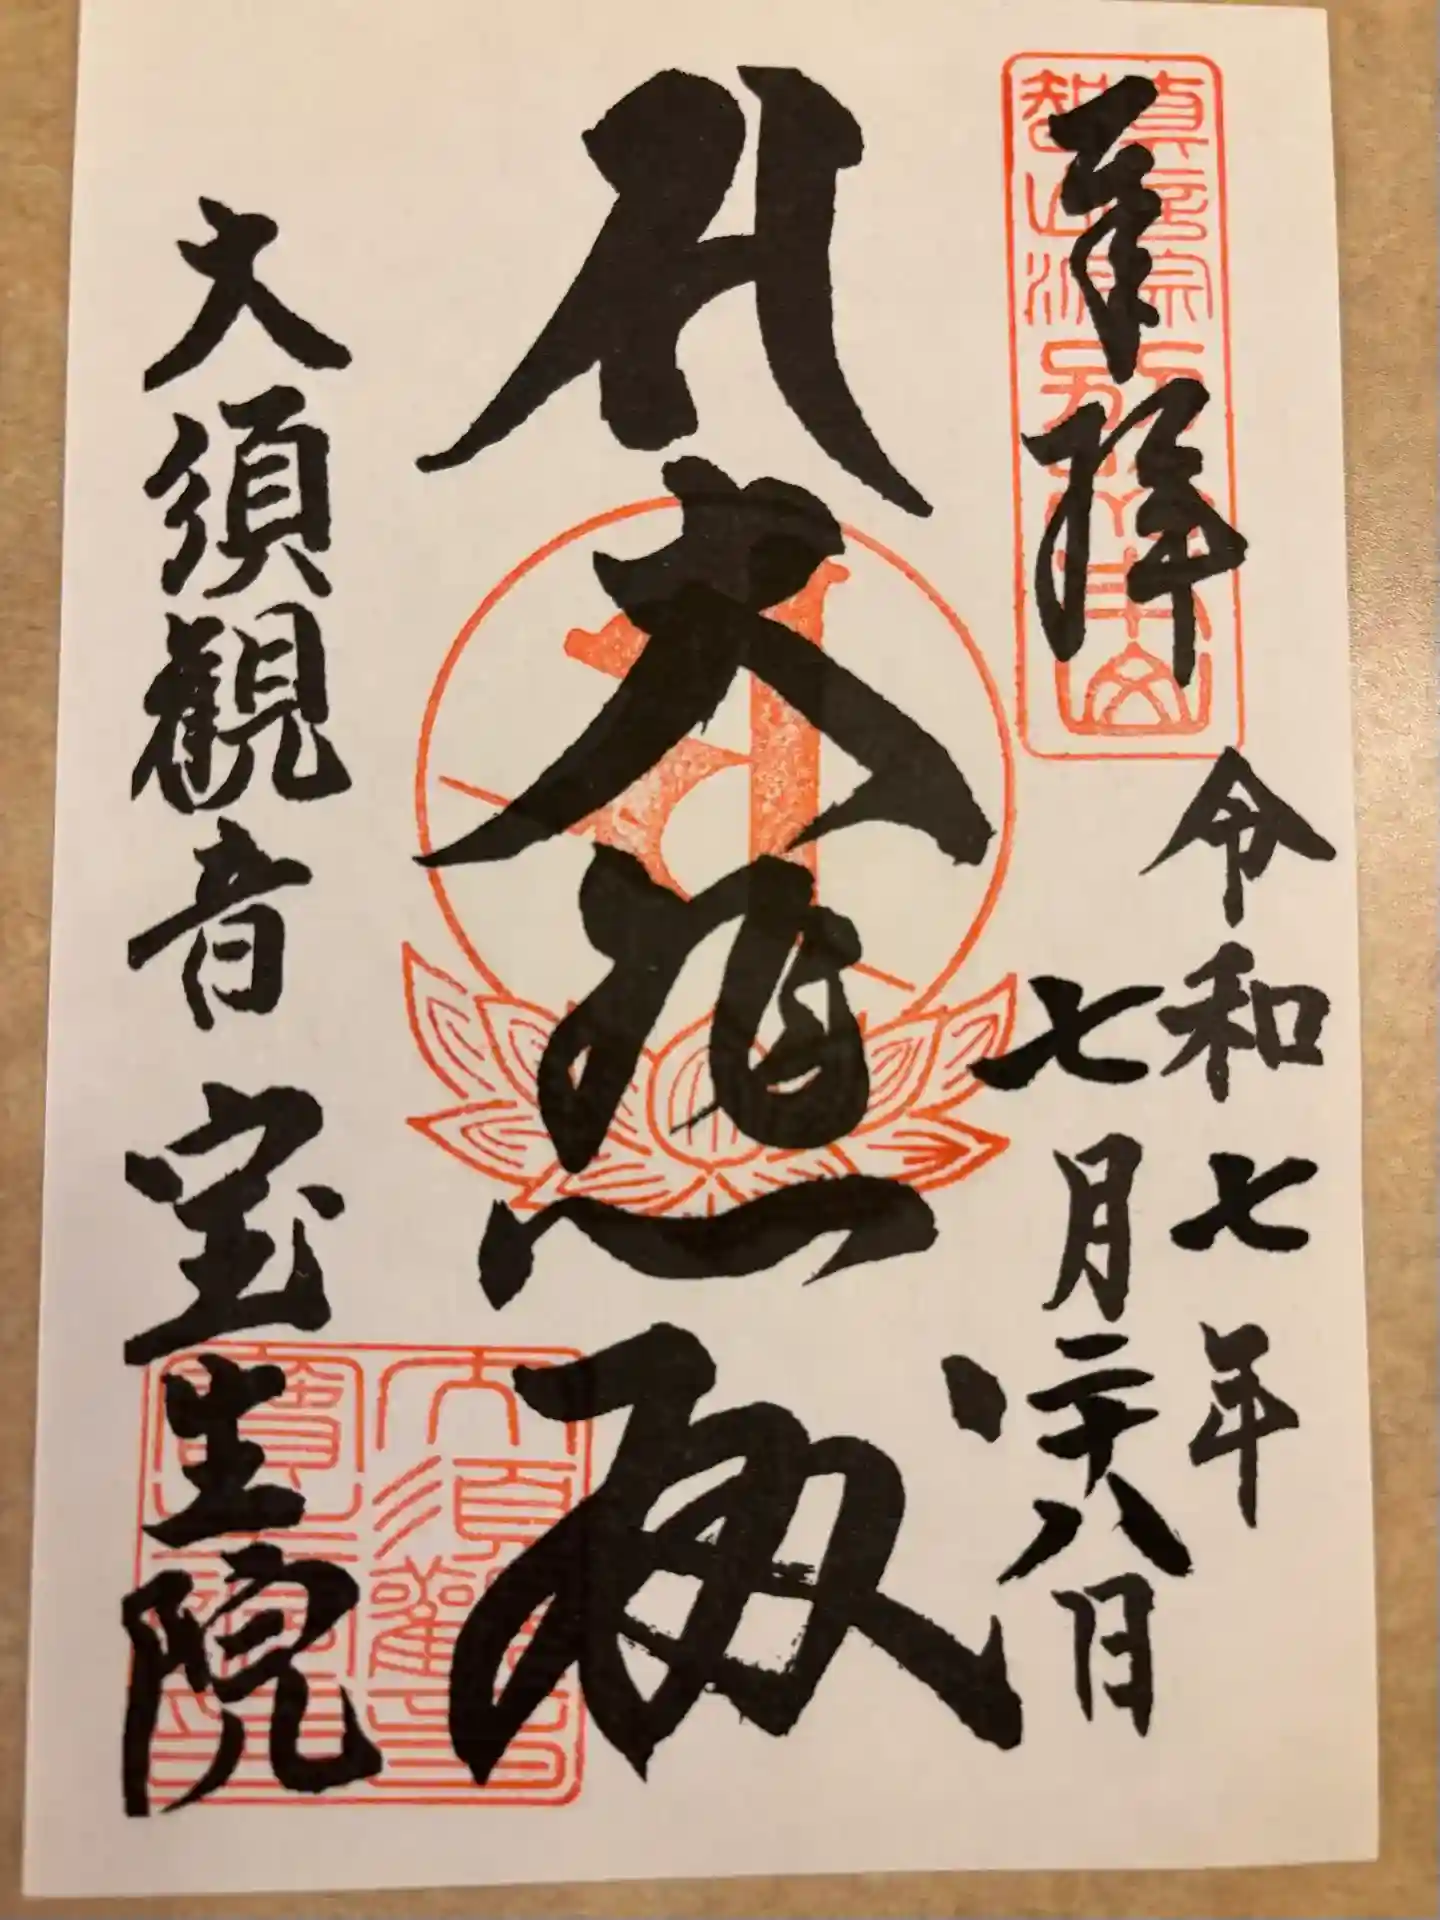 奉拝
真言宗
智山派
別格本山
令和七年
七月二十八日
大悲殿
大須観音 宝生院
大須観音
寶生院